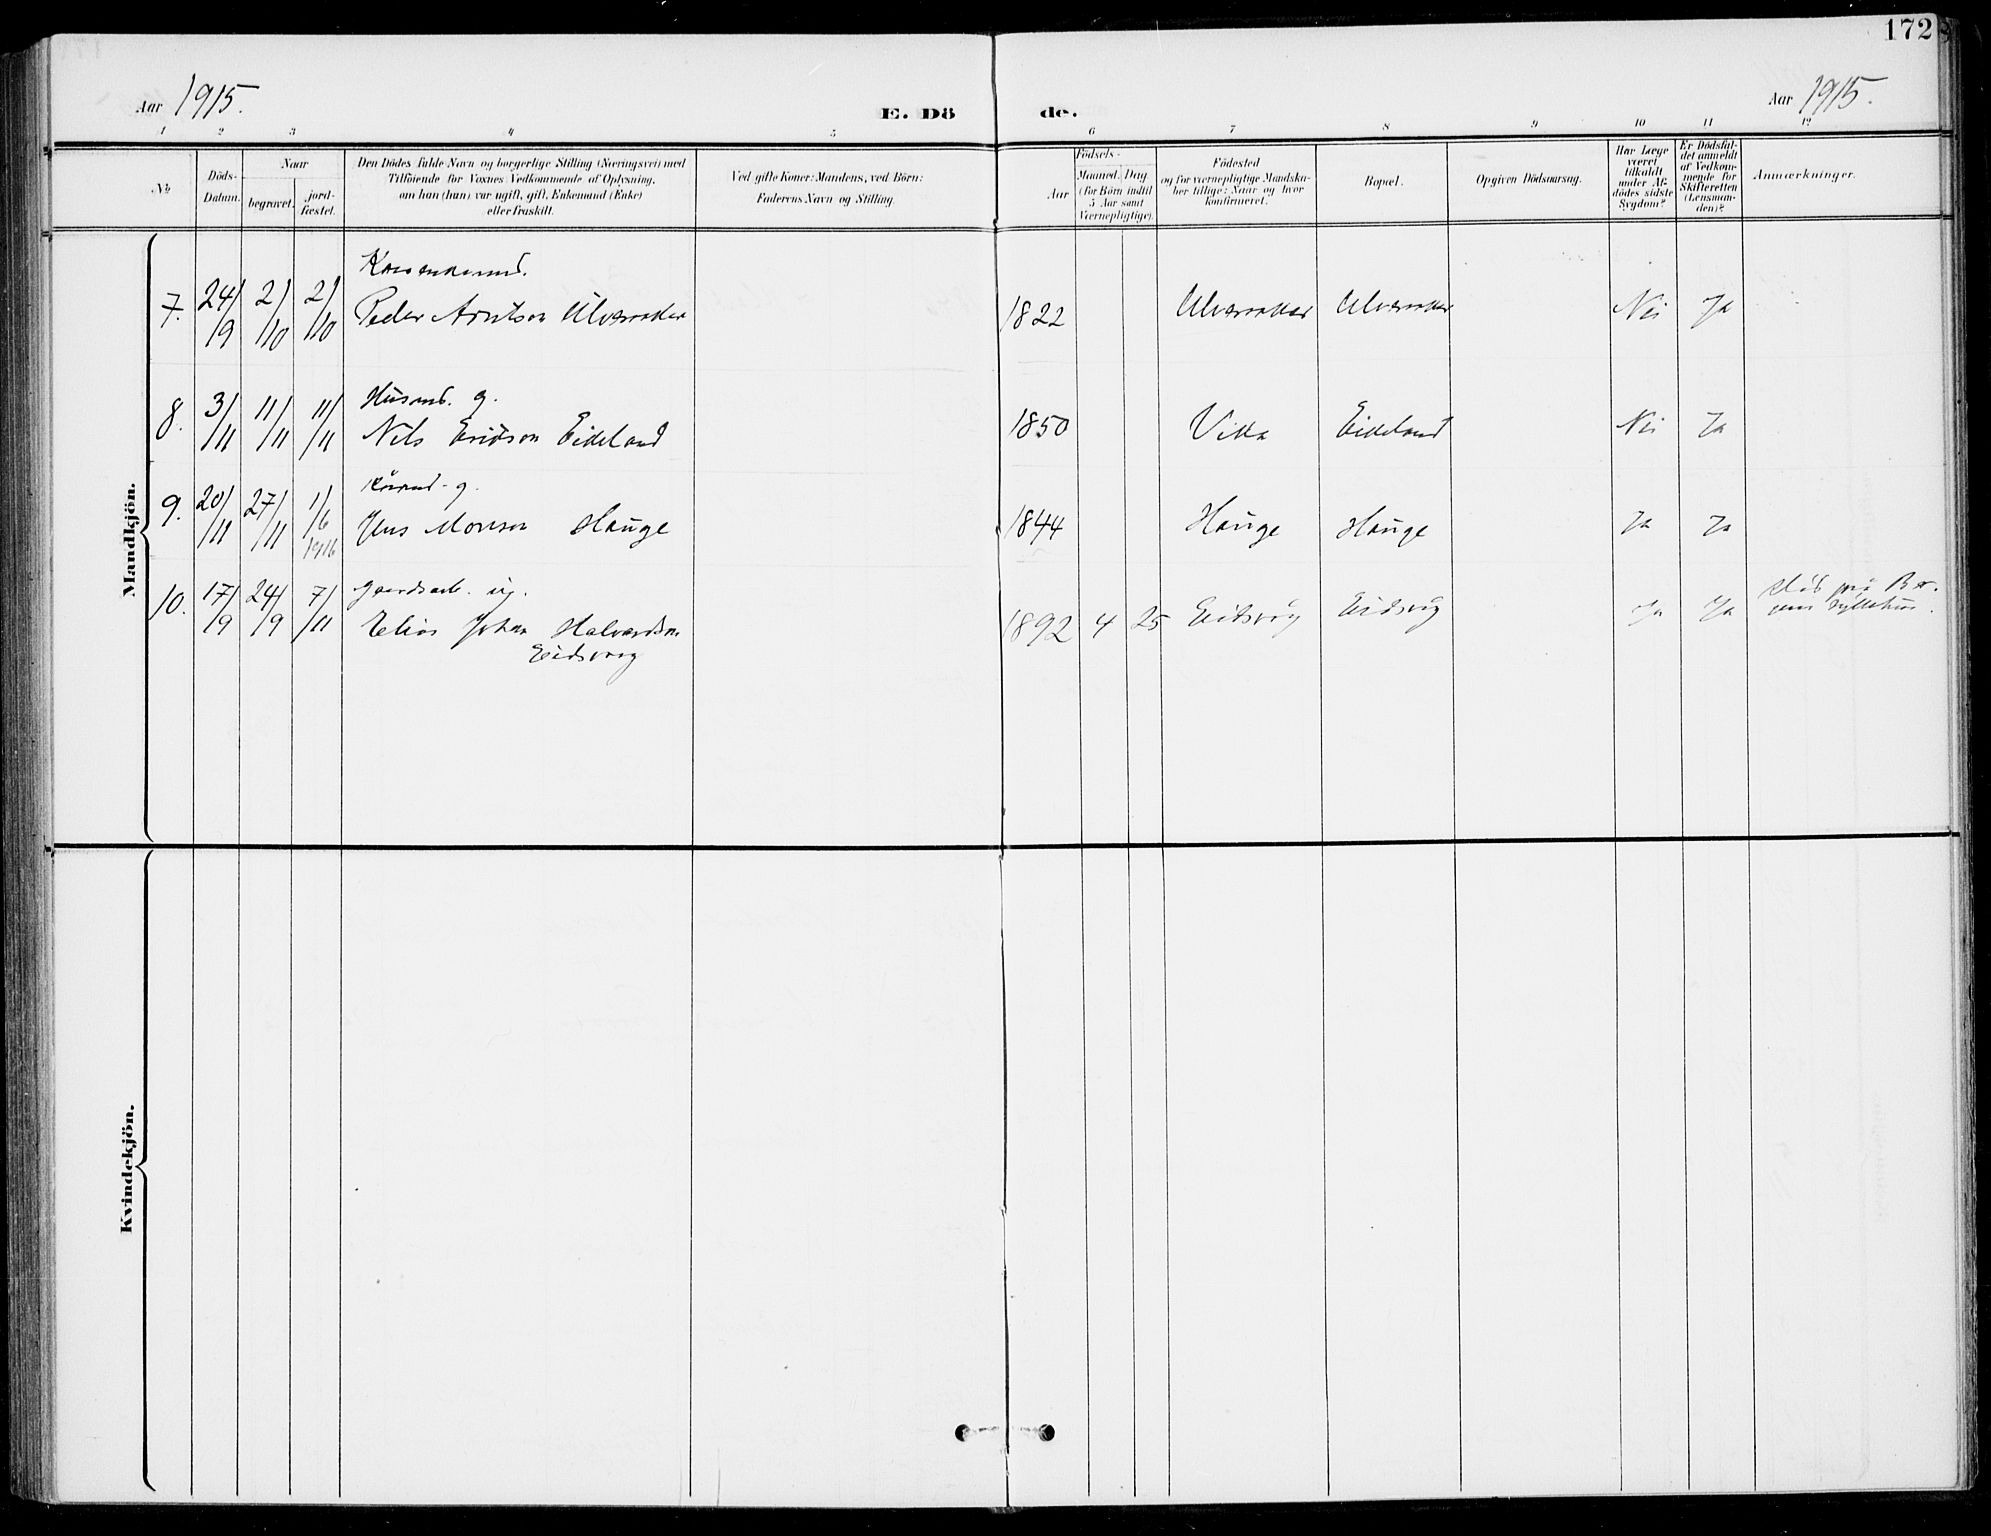 172
Aar 1915.
E. Dö de.
Aar 1915.
1 2 3 4 5 6 7 8 9 10 11 12
№
Döds-
Datum.
Naar
begravet.
jord-
fæstet.
Den Dödes fulde Navn og borgerlige Stilling (Næringsvei) med
Tilföiende for Voxnes Vedkommende af Oplysning,
om han (hun) var ugift, gift, Enkemand (Enke)
eller fraskilt.
Ved gifte Koner: Mandens, ved Börn:
Faderens Navn og Stilling.
Födsels-
Aar
Maaned. Dag.
(for Börn indtil
5 Aar samt
Værnepligtige).
Födested
og for værnepligtige Mandska-
ber tillige: Naar og hvor
konfirmeret.
Bopæl.
Opgiven Dödsaarsag.
Har Læge
været
tilkaldt
under Af-
dödes sidste
Sygdom?
Er Dödsfal-
det anmeldt
af Vedkom-
mende for
Skifteretten
(Lensman-
den)?
Anmærkninger.
Mandkjön.
7. 24/9 2/10 2/10 Peder Arntson Ulveraker 1822 Ulveraker Ulveraker Nei Ja
Husmd. g.
8. 3/11 11/11 11/11 Nils Erikson Eideland 1850 Vika Eideland Nei Ja
g.
9. 20/11 27/11 1/6 1916 Jens Monson Hauge 1844 Hauge Hauge Ja Ja
gaardsarb. ug.
10. 17/9 24/9 7/11 Elias Johan Halvardson
Eidsvåg
1892 4 25 Eidsvåg Eidsvåg Ja Ja
död på Ber-
gens sykehus.
Kvindekjön.